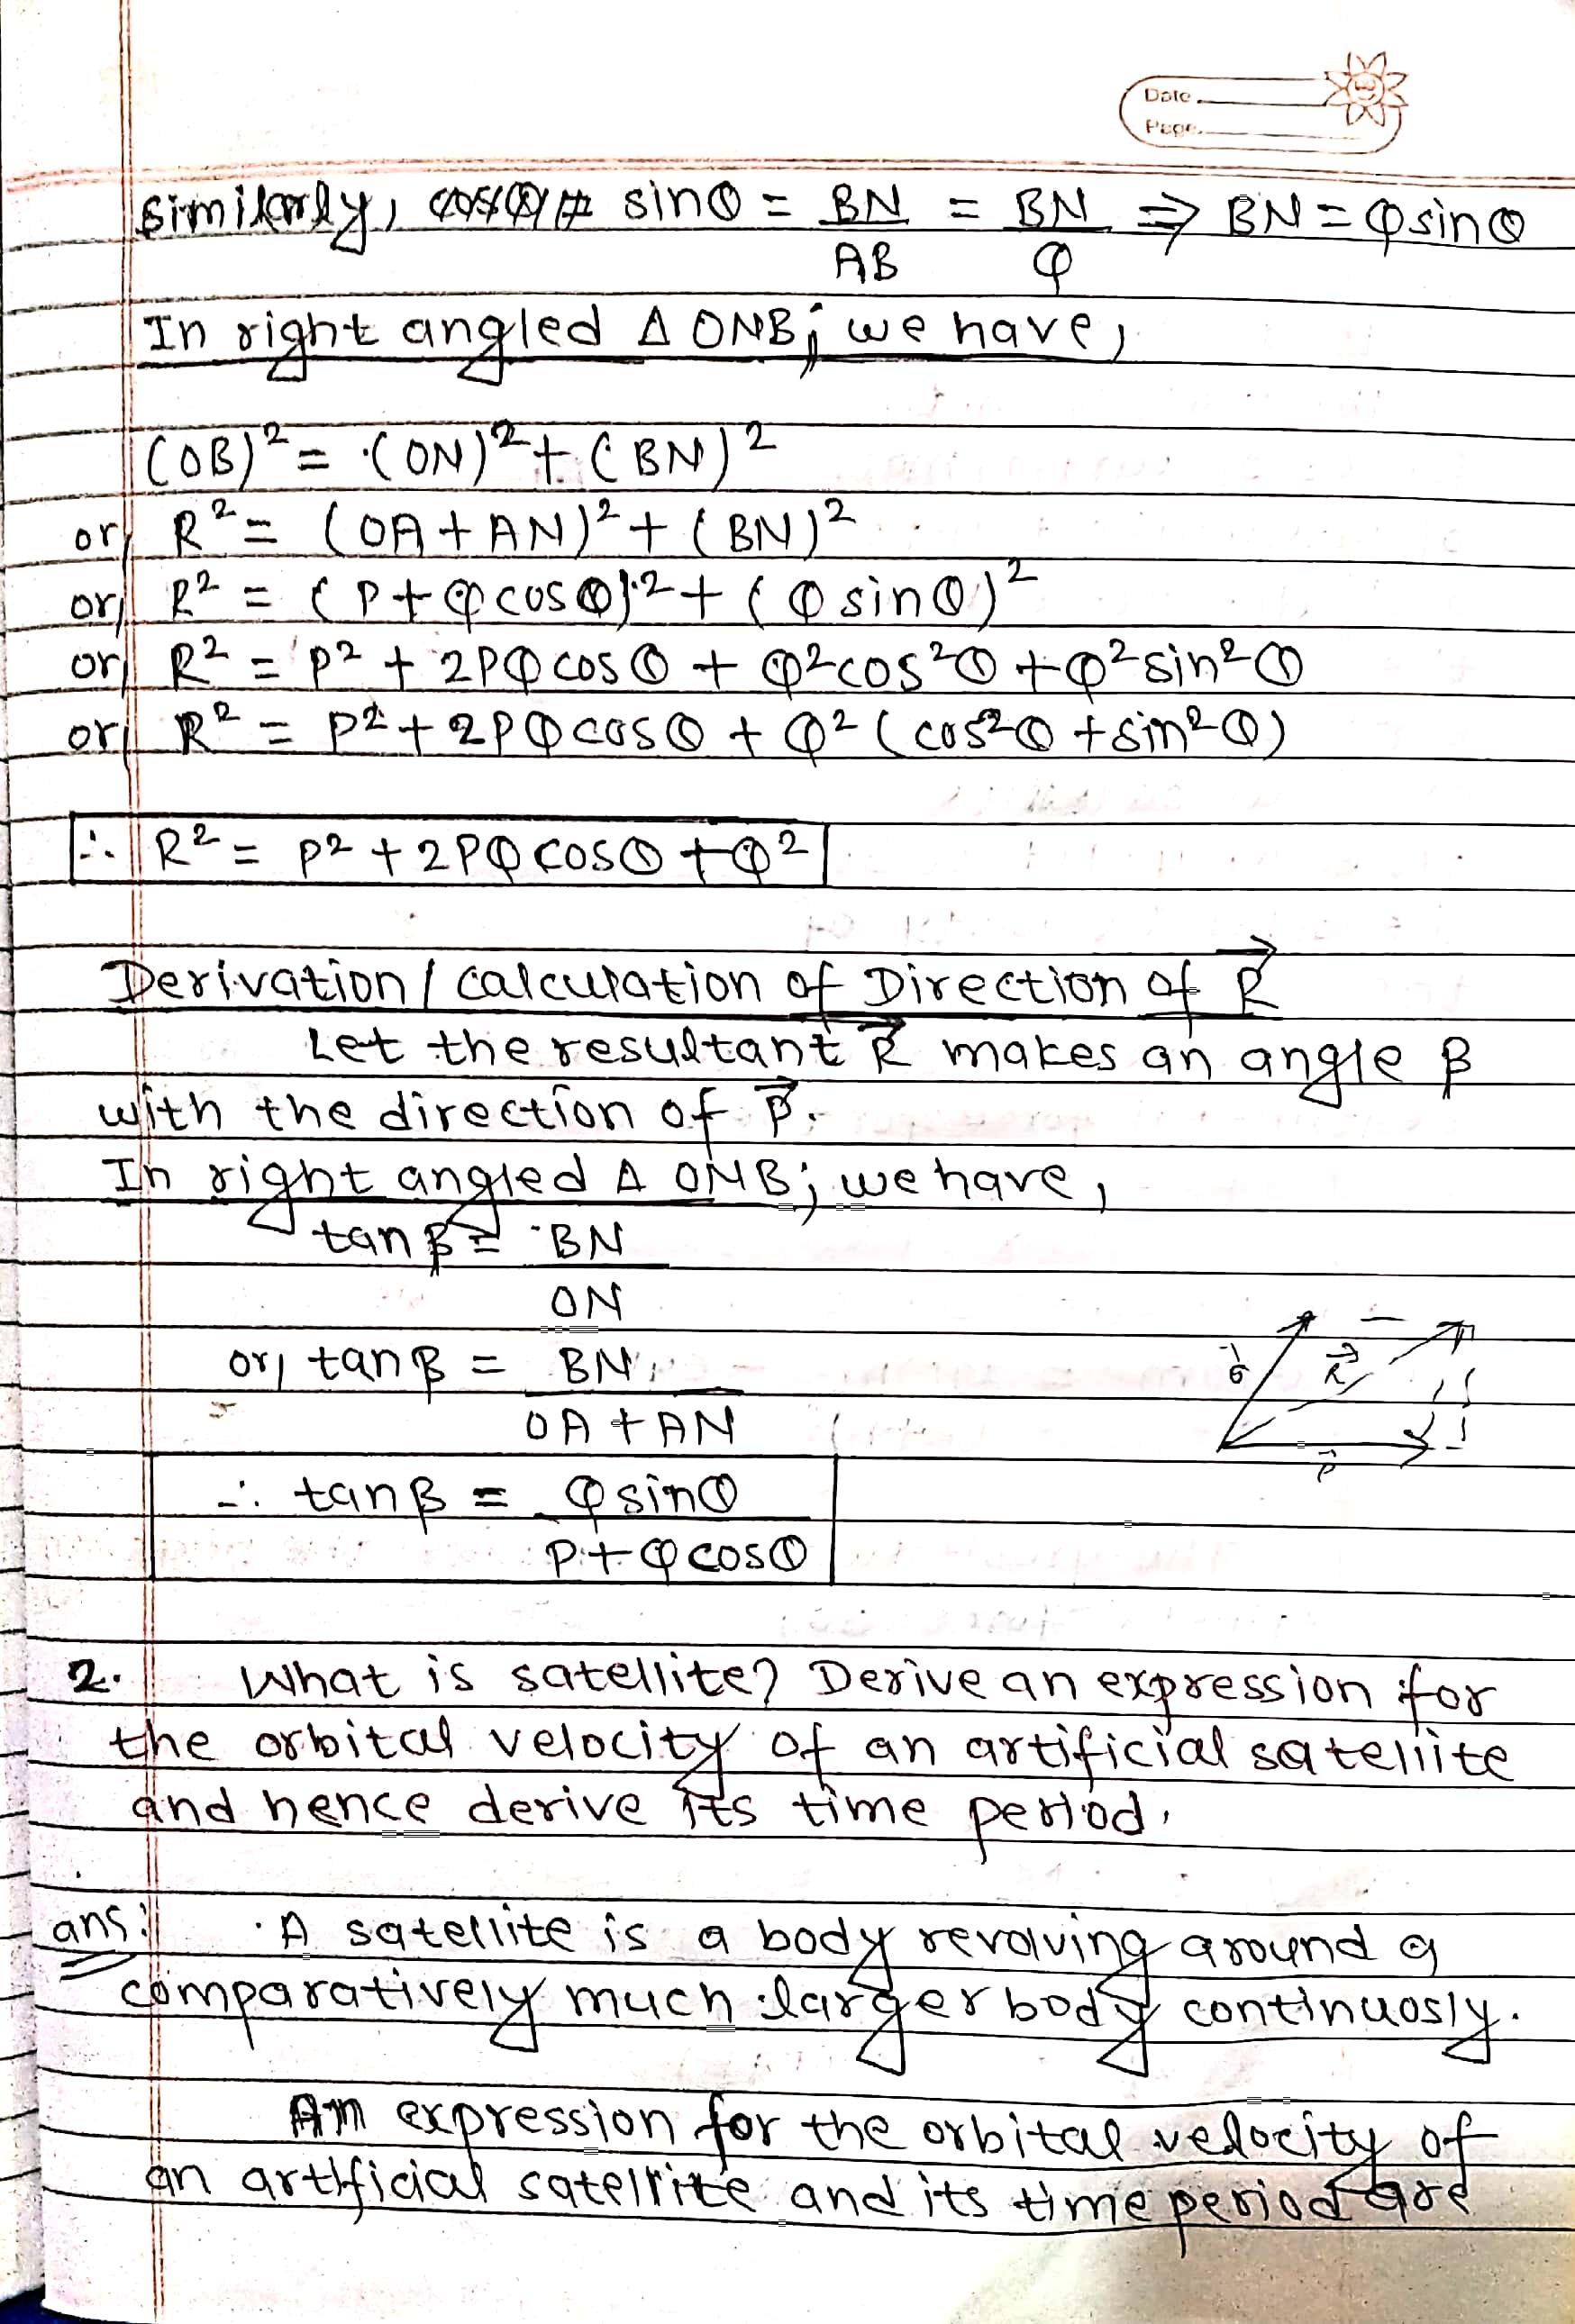 Date
Page
Similarly, sinθ = BN/AB = BN/Q ⇒ BN = Qsinθ
In right angled Δ ONB; we have,
(OB)² = (ON)² + (BN)²
or, R² = (OA + AN)² + (BN)²
or, R² = (P + Qcosθ)² + (Qsinθ)²
or, R² = P² + 2PQcosθ + Q²cos²θ + Q²sin²θ
or, R² = P² + 2PQcosθ + Q²(cos²θ + sin²θ)
∴ R² = P² + 2PQcosθ + Q²
Derivation / calculation of Direction of R⃗
Let the resultant R⃗ makes an angle β
with the direction of P⃗.
In right angled Δ ONB; we have,
tanβ = BN/ON
or, tanβ = BN/(OA + AN)
Q⃗ R⃗
P⃗
∴ tanβ = Qsinθ/(P + Qcosθ)
2. What is satellite? Derive an expression for
the orbital velocity of an artificial satellite
and hence derive its time period.
ans: A satellite is a body revolving around a
comparatively much larger body continuosly.
An expression for the orbital velocity of
an artificial satellite and its time period are